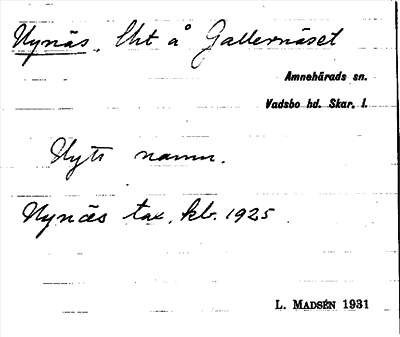 Nynäs, lht å Gallernäset
Amnehärads sn.
Vadsbo hd. Skar. l.
Nytt namn.
Nynäs tax. kb. 1925
L. MADSÉN 1931